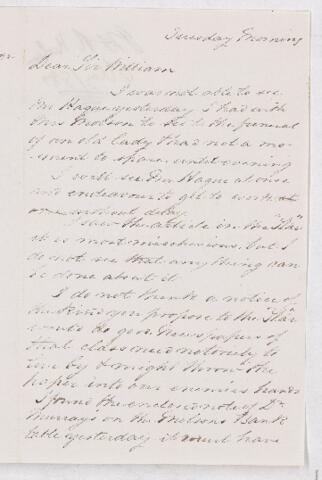 Tuesday Morning
Dear Sir William
I was not able to see
Mr Hague yesterday I had with
Mrs Molson to see to the funeral
of an old lady & had not a mo-
ment to spare until evening
I will see Mr Hague at once
and endeavour to get to work
without delay
I saw the article in the "Star"
it is most mischievous, but I
do not see that anything can
be done about it
I do not think a notice of
the kind you propose to the "Star"
would do good. Newspapers of
that class need notoriety to
live by & might throw the
paper into our enemies hands
I found the enclosed note of Dr
Murray's on the Molsons Bank
table yesterday it must have